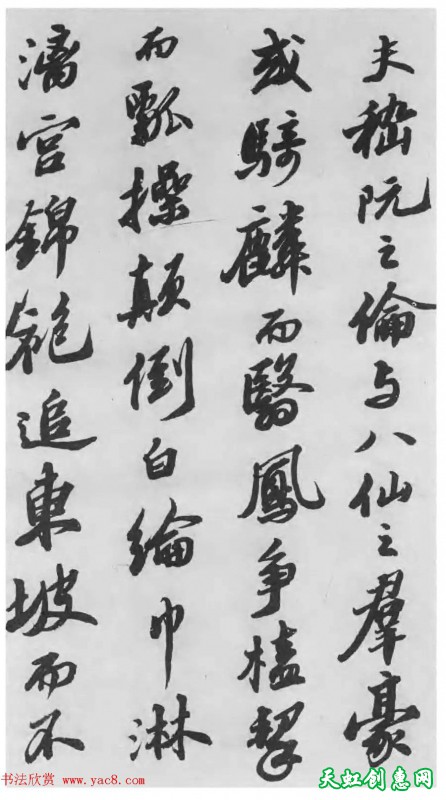 夫嵇阮之倫与八仙之羣豪
或騎麟而翳鳳爭榼挈
而瓢操顛倒白綸巾淋
漓宮錦袍追東坡而不
书法欣赏 www.yac8.com
天虹创惠网